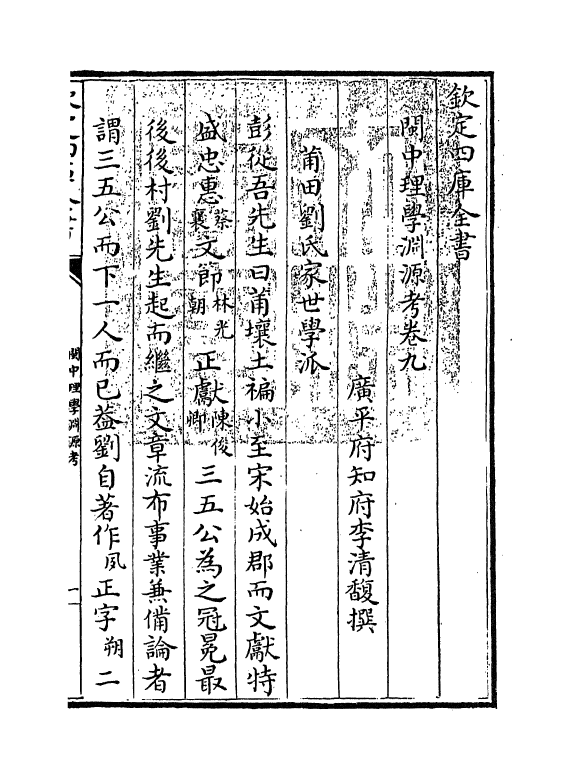 欽定四庫全書
閩中理學淵源考卷九
廣平府知府李清馥撰
莆田劉氏家世學派
彭從吾先生曰莆壤土褊小至宋始成郡而文獻特
盛忠惠蔡襄文節林光朝正獻陳俊卿三五公為之冠冕最
後後村劉先生起而繼之文章流布事業兼備論者
謂三五公而下一人而已葢劉自著作夙正字朔二
閩中理學淵源考
一